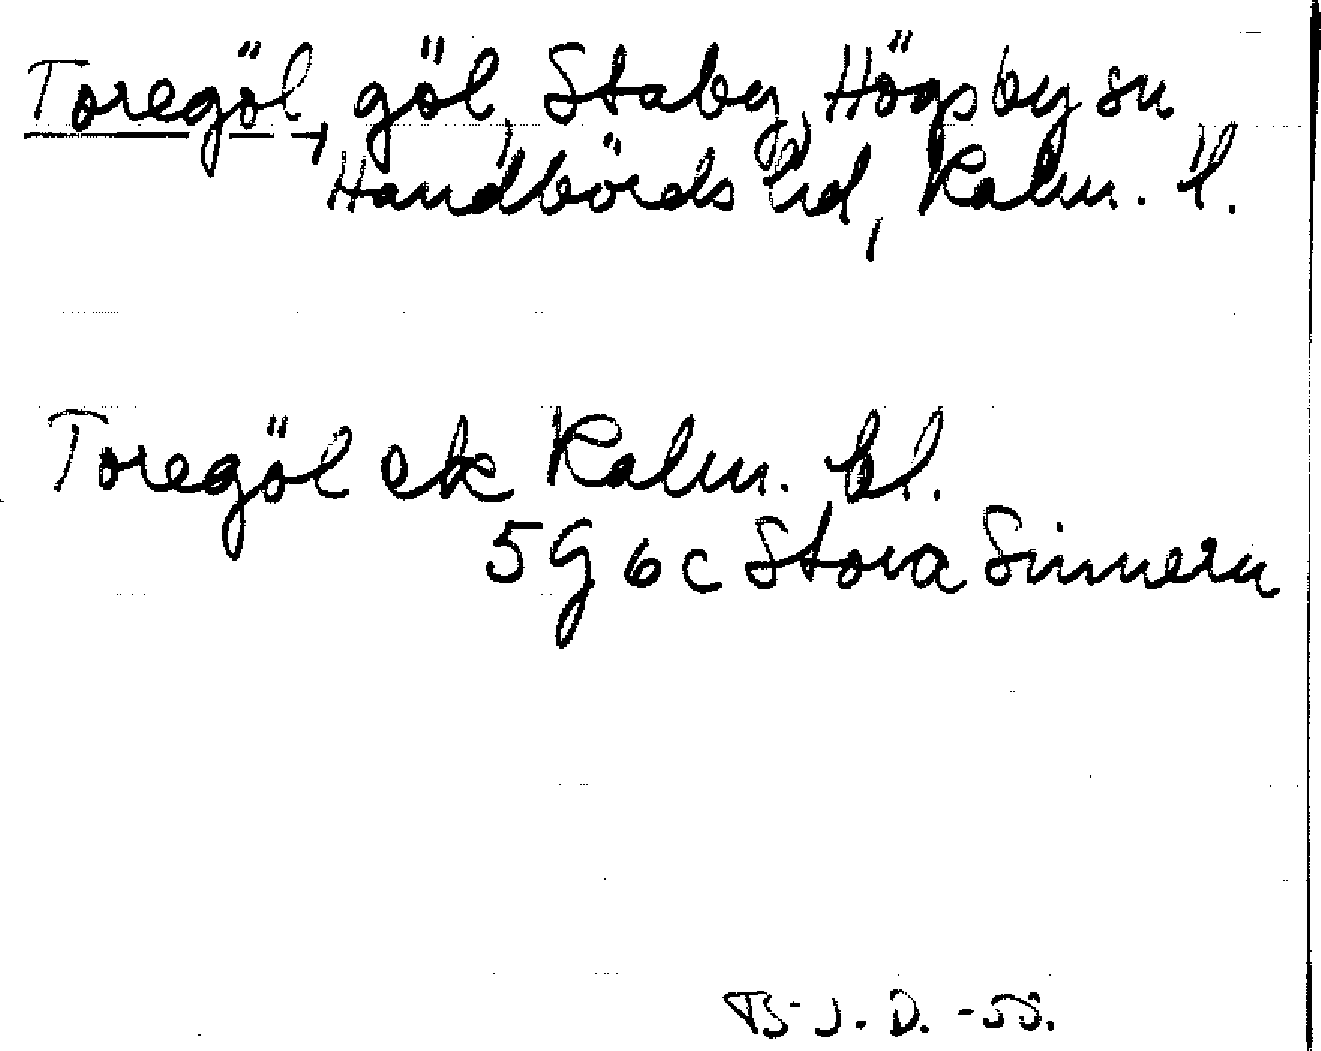 Toregöl, göl, Staby, Högsby sn
Handbörds hd, Kalm. l.
Toregöl ek Kalm. bl.
5G 6c Stora Sinnern
B-J. D. -55.